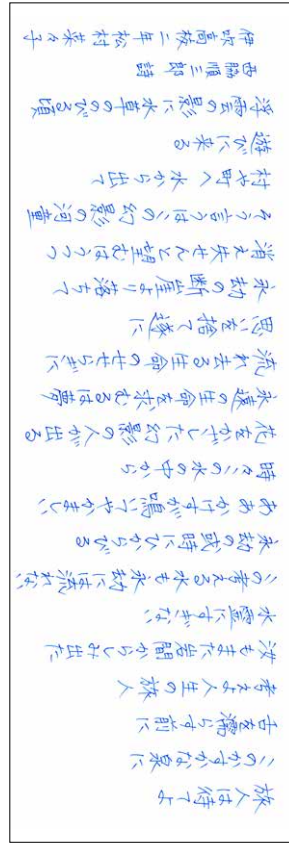 旅人は待てよ
このかすかな泉に
舌を濡らす前に
考えよ人生の旅人
汝もまた岩間からしみ出た
水霊にすぎない
この考える水も永劫には流れない
永劫の或時にひからびる
ああかけすが鳴いてやかましい
時々この水の中から
花をかざした幻影の人が出る
永遠の生命を求むるは夢
流れ去る生命のせせらぎに
思いを捨て遂に
永劫の断崖より落ちて
消え失せんと望むはうつつ
そう言うはこの幻影の河童
村や町へ水から出て
遊びに来る
浮雲の影に水草ののびる頃
西脇順三郎 詩
伊吹高校二年 松村菜々子